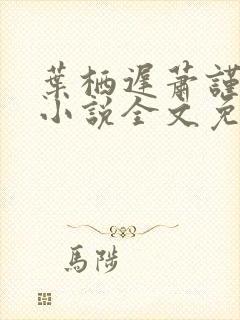 葉栖遲蕭謹
小說全文免
馬陟